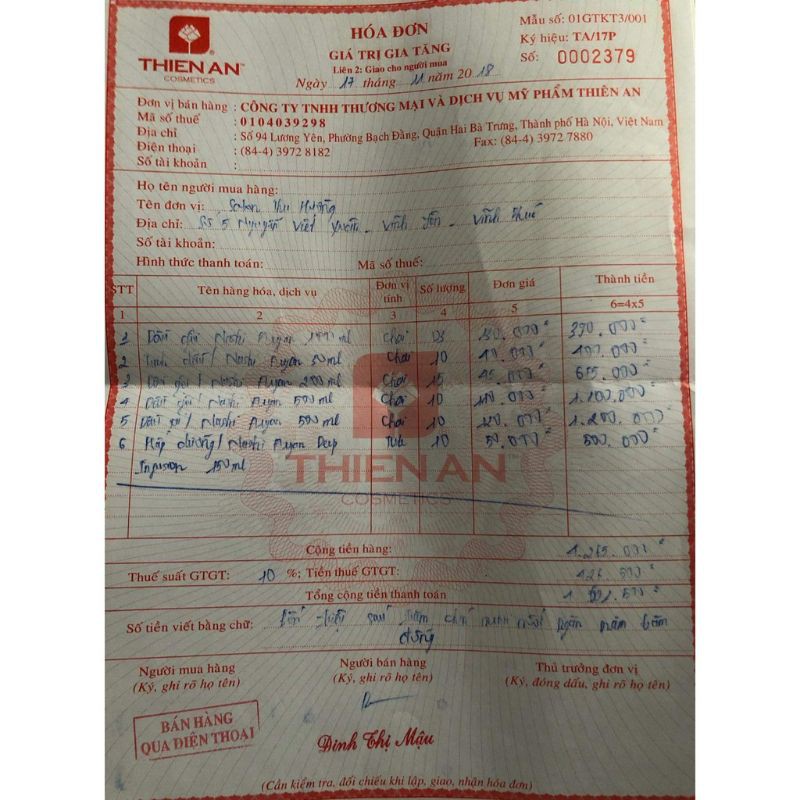 THIEN AN®
COSMETICS
HÓA ĐƠN
GIÁ TRỊ GIA TĂNG
Liên 2: Giao cho người mua
Ngày 17 tháng 11 năm 2018
Mẫu số: 01GTKT3/001
Ký hiệu: TA/17P
Số: 0002379
Đơn vị bán hàng : CÔNG TY TNHH THƯƠNG MẠI VÀ DỊCH VỤ MỸ PHẨM THIÊN AN
Mã số thuế : 0104039298
Địa chỉ : Số 94 Lương Yên, Phường Bạch Đằng, Quận Hai Bà Trưng, Thành phố Hà Nội, Việt Nam
Điện thoại : (84-4) 3972 8182 Fax: (84-4) 3972 7880
Số tài khoản :
Họ tên người mua hàng:
Tên đơn vị: Salon Thu Hường
Địa chỉ: Số 5 Nguyễn Viết Xuân - Vĩnh Yên - Vĩnh Phúc
Số tài khoản:
Hình thức thanh toán: Mã số thuế:
STT Tên hàng hóa, dịch vụ Đơn vị tính Số lượng Đơn giá Thành tiền
1 2 3 4 5 6=4x5
1 Dầu Nashi Argan ml Chai 03
2 Tinh dầu / Nashi Argan 30ml Chai 10
3 Dầu gội / Nashi Argan 200 ml Chai 15 45.000đ 675.000đ
4 Dầu gội / Nashi Argan 500 ml Chai 10
5 Dầu xả / Nashi Argan 500 ml Chai 10
6 Hấp dưỡng / Nashi Argan Deep Tub 10 50.000đ 500.000đ
Infusion 150ml
THIEN AN
COSMETICS
Cộng tiền hàng: 4.265.000đ
Thuế suất GTGT: 10 %; Tiền thuế GTGT: 426.500đ
Tổng cộng tiền thanh toán
Số tiền viết bằng chữ: Bốn triệu sáu trăm chín mươi mốt ngàn năm trăm
đồng
Người mua hàng
(Ký, ghi rõ họ tên)
Người bán hàng
(Ký, ghi rõ họ tên)
Thủ trưởng đơn vị
(Ký, đóng dấu, ghi rõ họ tên)
BÁN HÀNG
QUA ĐIỆN THOẠI
Đinh Thị Mậu
(Cần kiểm tra, đối chiếu khi lập, giao, nhận hóa đơn)